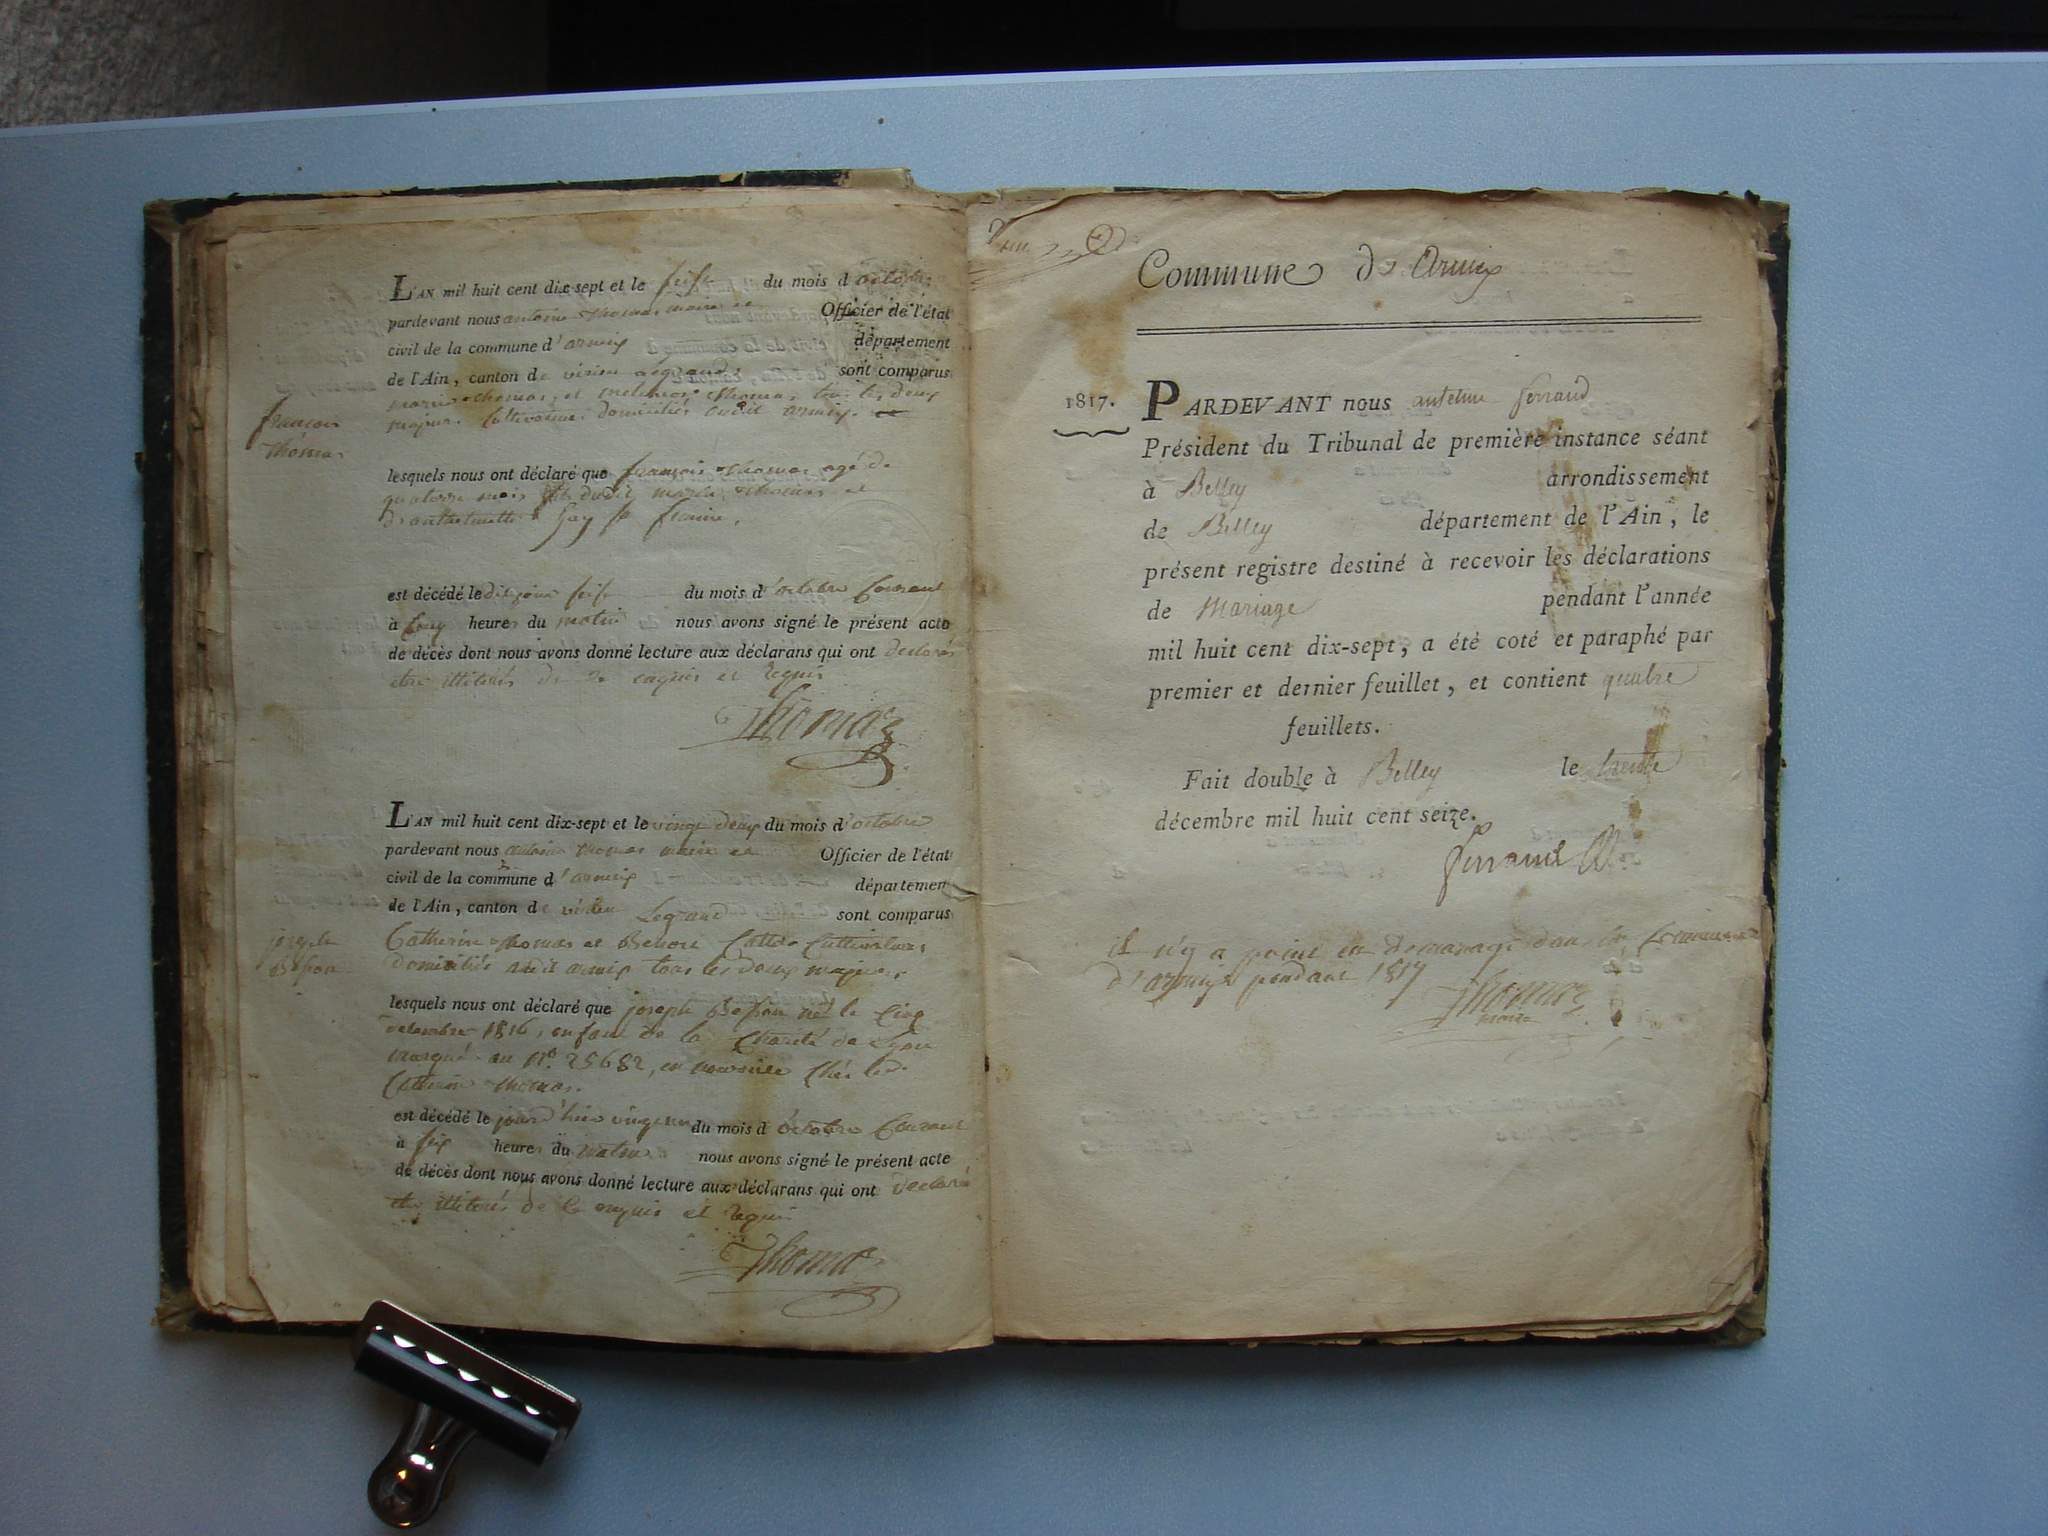 L'AN mil huit cent dix-sept et le seize du mois d octobre
pardevant nous antoine thomas maire et Officier de l'état
civil de la commune d'armix département
de l'Ain, canton de virieu Legrand sont comparus
marin thomas, et thomas, tous les deux
majeurs Cultivateurs domiciliés audit armix.
françois
thomas
lesquels nous ont déclaré que françois thomas agé de
quatorze mois fils dudit marin thomas et
d'anthelmette Gay sa femme,
est décédé le dit jour seize du mois d'octobre Courant
à heures du matin nous avons signé le présent acte
de décès dont nous avons donné lecture aux déclarans qui ont déclarés
etre illiterés de ce enquis et requis
Thomas
L'AN mil huit cent dix-sept et le vingt deux du mois d'octobre
pardevant nous antoine thomas maire et Officier de l'état
civil de la commune d'armix départemen
de l'Ain, canton de virieu Legrand sont comparus
Catherine thomas et Benoit Cultivateurs
domiciliés audit armix tous les deux majeurs
joseph
Besson
lesquels nous ont déclaré que joseph Besson né le Cinq
decembre 1816, enfant de la Charité de Lyon
marqué au N° 25682, en nourrice Chés
Catherine thomas.
est décédé le jour d'hier vingt un du mois d'octobre Courant
à six heures du matin nous avons signé le présent acte
de décès dont nous avons donné lecture aux déclarans qui ont déclaré
etre illiterés de ce enquis et requis
Thomas
Commune de Armix
1817. PARDEVANT nous antelme ferrand
Président du Tribunal de première instance séant
à Belley arrondissement
de Belley département de l'Ain, le
présent registre destiné à recevoir les déclarations
de Mariage pendant l'année
mil huit cent dix-sept, a été coté et paraphé par
premier et dernier feuillet, et contient quatre
feuillets.
Fait double à Belley le trente
décembre mil huit cent seize.
ferrand
il n'y a point eu de mariage dans la Commune
d'armix pendant 1817
Thomas
maire